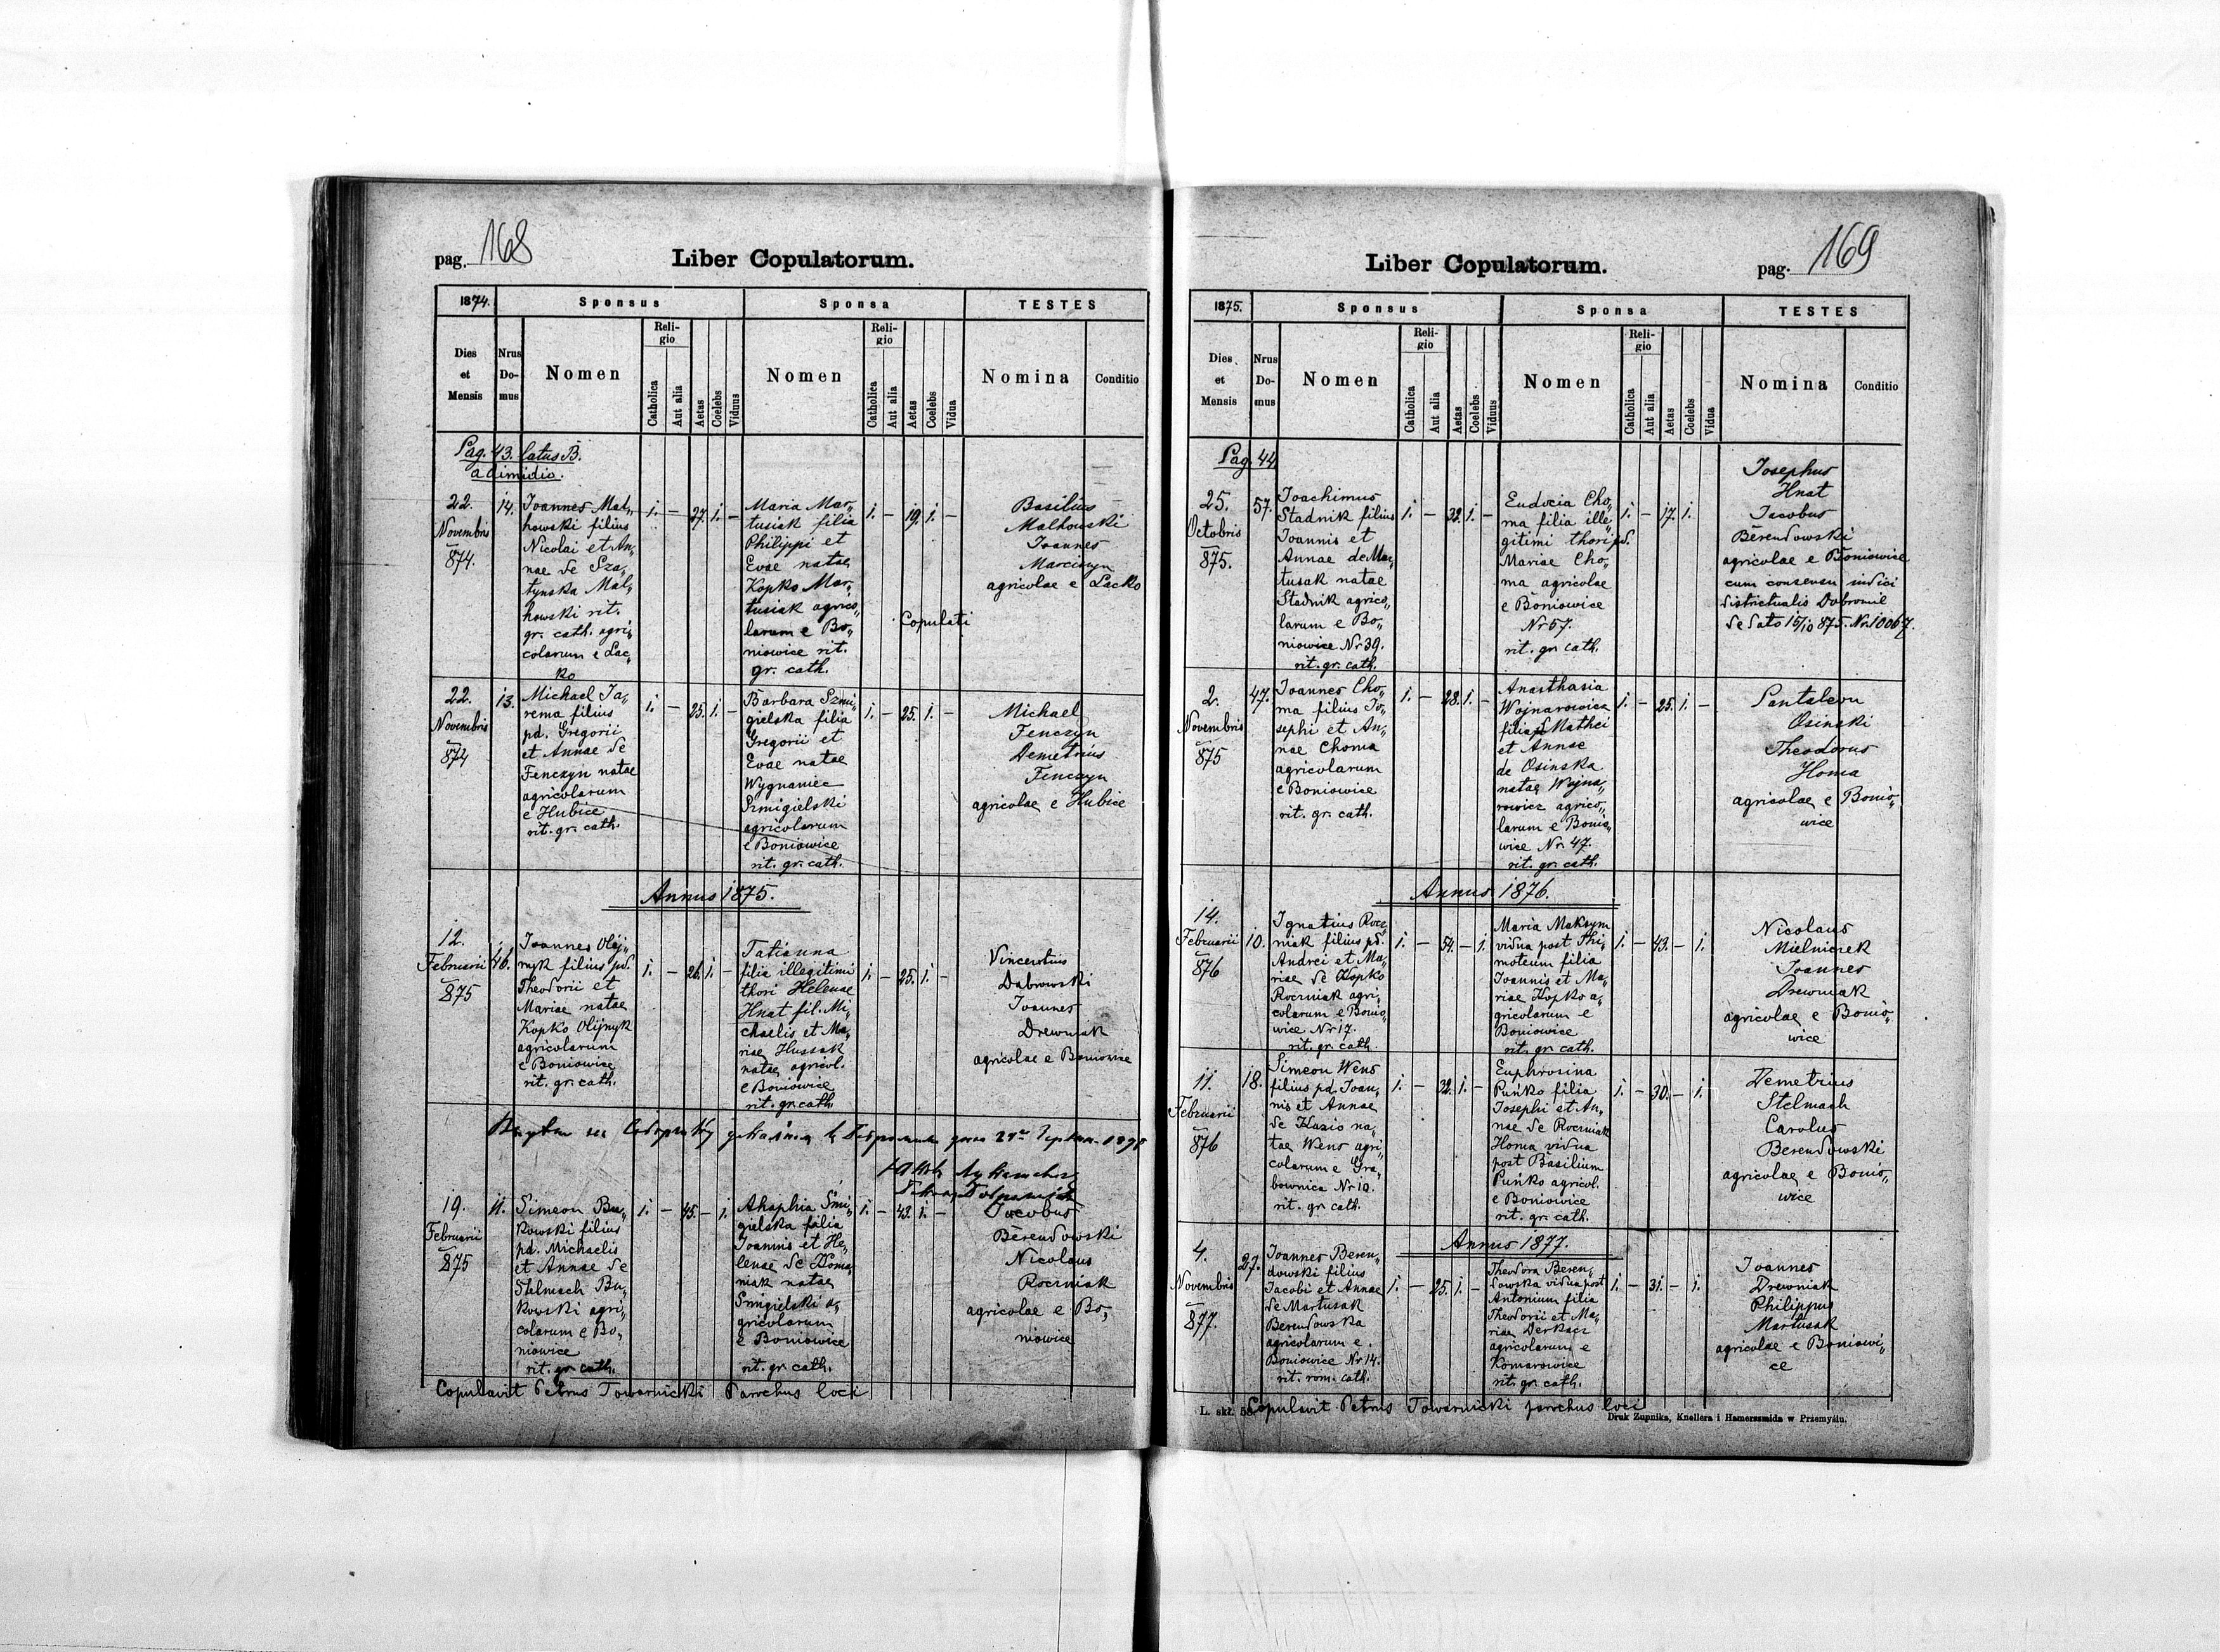 pag. 168
Liber Copulatorum.
1874.
Sponsus
Sponsa
TESTES
Dies et Mensis
Nrus Domus
Nomen
Religio
Catholica
Aut alia
Aetas
Coelebs
Viduus
Nomen
Religio
Catholica
Aut alia
Aetas
Coelebs
Vidua
Nomina
Conditio
Pag. 43. latus B.
a dimidio.
22.
Novembris
874.
14.
Joannes Mal„
howski filius
Nicolai et An„
nae de Sza„
tynska Mal„
howski rit.
gr. cath. agri„
colarum e Lac„
ko
1. — 27. 1. —
Maria Mar„
tusiak filia
Philippi et
Evae natae
Kopko Mar„
tusiak agrico„
larum e Bo„
niowice rit.
gr. cath.
1. — 19. 1. —
Copulati
Basilius
Malhowski
Joannes
Marciszyn
agricolae e Lacko
22.
Novembris
874
13.
Michael Ja„
rema filius
pd. Gregorii
et Annae de
Fenczyn natae
agricolarum
e Hubice
rit. gr. cath.
1. — 25. 1. —
Barbara Szmi„
gielska filia
Gregorii et
Evae natae
Wygnaniec
Szmigielski
agricolarum
e Boniowice
rit. gr. cath.
1. — 25. 1. —
Michael
Fenczyn
Demetrius
Fenczyn
agricolae e Hubice
Annus 1875.
12.
Februarii
875
46.
Joannes Olij„
nyk filius pd.
Theodorii et
Mariae natae
Kopko Olijnyk
agricolarum
e Boniowice
rit. gr. cath.
1. — 26. 1. —
Tatianna
filia illegitimi
thori Helenae
Hnat fil. Mi„
chaelis et Ma„
riae Hussak
natae agricol.
e Boniowice
rit. gr. cath.
1. — 25. 1. —
Vincentius
Dabrowski
Joannes
Drewniak
agricolae e Boniowice
19.
Februarii
875
11.
Simeon Bu„
kowski filius
pd. Michaelis
et Annae de
Stelmach Bu„
kowski agri„
colarum e Bo„
niowice
rit. gr. cath.
1. — 45. — 1.
Ahaphia Smi„
gielska filia
Joannis et He„
lenae de Koma„
niak natae
Smigielski a„
gricolarum
e Boniowice
rit. gr. cath.
1. — 43. 1. —
Jacobus
Berendowski
Nicolaus
Roczniak
agricolae e Bo„
niowice
Copulavit Petrus Towarnicki Parochus loci
Liber Copulatorum.
pag. 169
1875.
Sponsus
Sponsa
TESTES
Dies et Mensis
Nrus Domus
Nomen
Religio
Catholica
Aut alia
Aetas
Coelebs
Viduus
Nomen
Religio
Catholica
Aut alia
Aetas
Coelebs
Vidua
Nomina
Conditio
Pag. 44
25.
Octobris
875.
57.
Joachimus
Stadnik filius
Joannis et
Annae de Mar„
tusak natae
Stadnik agrico„
larum e Bo„
niowice Nr 39.
rit. gr. cath.
1. — 32. 1. —
Eudocia Cho„
ma filia ille„
gitimi thori pd.
Mariae Cho„
ma agricolae
e Boniowice
Nr 57.
rit. gr. cath.
1. — 17. 1.
Josephus
Hnat
Jacobus
Berendowski
agricolae e Boniowice
cum consensu iudici
districtualis Dobromil
de dato 15/10 875. Nr. 10067.
2.
Novembris
875
47.
Joannes Cho„
ma filius Jo„
sephi et An„
nae Choma
agricolarum
e Boniowice
rit. gr. cath.
1. — 28. 1. —
Anasthasia
Wojnarowicz
filia Mathei
et Annae
de Osinska
natae Wojna„
rowicz agrico„
larum e Bonio„
wice Nr. 47.
rit. gr. cath.
1. — 25. 1. —
Pantaleon
Osinski
Theodorus
Homa
agricolae e Bonio„
wice
Annus 1876.
14.
Februarii
876
10.
Ignatius Rocz„
niak filius pd.
Andrei et Ma„
riae de Kopko
Roczniak agri„
colarum e Bonio„
wice Nr 17.
rit. gr. cath.
1. — 54. — 1.
Maria Maksym
vidua post Thi„
moteum filia
Joannis et Ma„
riae Kopko a„
gricolarum e
Boniowice
rit. gr. cath.
1. — 43. — 1.
Nicolaus
Mielniczek
Joannes
Drewniak
agricolae e Bonio„
wice
11.
Februarii
876
18.
Simeon Wens
filius pd. Joan„
nis et Annae
de Kazio na„
tae Wens agri„
colarum e Gra„
bownica Nr 10.
rit. gr. cath.
1. — 32. 1. —
Euphrosina
Puńko filia
Josephi et An„
nae de Roczniak
Homa vidua
post Basilium
Puńko agricol.
e Boniowice
rit. gr. cath.
1. — 30. — 1.
Demetrius
Stelmach
Carolus
Berendowski
agricolae e Bonio„
wice
Annus 1877.
4.
Novembris
877.
27.
Joannes Beren„
dowski filius
Jacobi et Annae
de Martusak
Berendowska
agricolarum e
Boniowice Nr 14.
rit. rom. cath.
1. — 25. 1. —
Theodora Beren„
dowska vidua post
Antonium filia
Theodorii et Ma„
riae Derkacz
agricolarum e
Komarowice
rit. gr. cath.
1. — 31. — 1.
Joannes
Drewniak
Philippus
Martusak
agricolae e Boniowi„
ce
Copulavit Petrus Towarnicki parochus loci
L. skł. 58
Druk Żupnika, Knellera i Hamerszmida w Przemyślu.